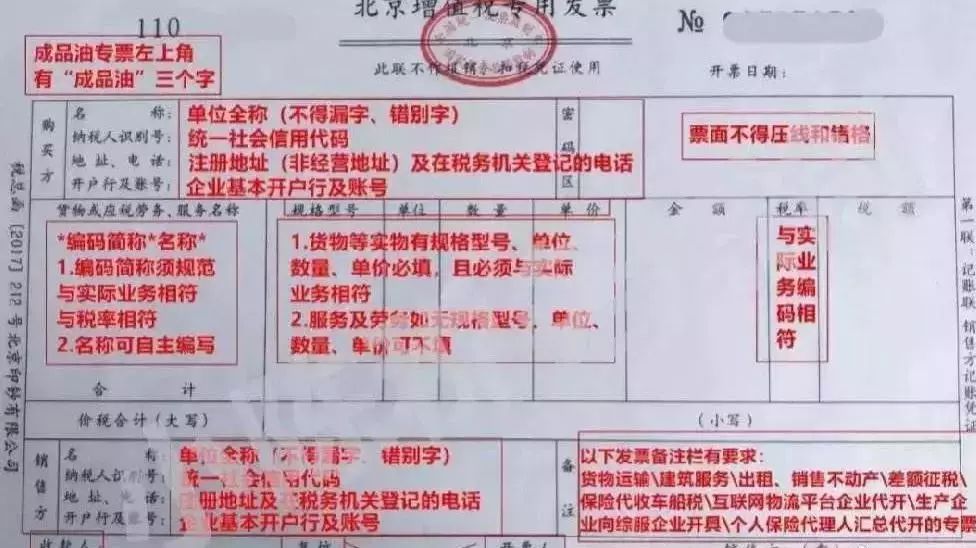 北京增值税专用发票
110
№
成品油专票左上角
有“成品油”三个字
北京
此联不作报销、扣税凭证使用
开票日期：
购买方
名称：
纳税人识别号：
地址、电话：
开户行及账号：
单位全称（不得漏字、错别字）
统一社会信用代码
注册地址（非经营地址）及在税务机关登记的电话
企业基本开户行及账号
密码区
票面不得压线和错格
货物或应税劳务、服务名称
规格型号
单位
数量
单价
金额
税率
税额
*编码简称*名称*
1.编码简称须规范
与实际业务相符
与税率相符
2.名称可自主编写
1.货物等实物有规格型号、单位、
数量、单价必填，且必须与实际
业务相符
2.服务及劳务如无规格型号，单位、
数量、单价可不填
与实际业务编码相符
合计
价税合计（大写）
（小写）
销售方
名称：
纳税人识别号：
地址、电话：
开户行及账号：
单位全称（不得漏字、错别字）
统一社会信用代码
注册地址及在税务机关登记的电话
企业基本开户行及账号
备注
以下发票备注栏有要求：
货物运输\建筑服务\出租、销售不动产\差额征税\
保险代收车船税\互联网物流平台企业代开\生产企
业向综服企业开具\个人保险代理人汇总代开的专票
收款人
税总函［2017］212号北京印钞有限公司
第一联：记账联 销售方记账凭证